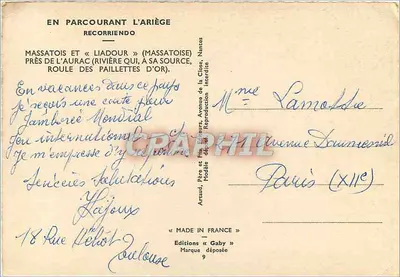 EN PARCOURANT L'ARIÈGE
RECORRIENDO
MASSATOIS ET « LIADOUR » (MASSATOISE)
PRÈS DE L'AURAC (RIVIÈRE QUI, A SA SOURCE,
ROULE DES PAILLETTES D'OR).
En vacances dans ce pays
je reçois une carte pour
Jamborée Mondial
international
je m'empresse d'y répondre
Sincères salutations
Lajoux
18 Rue Héliot
Toulouse
Artaud, Père et Fils, Éditeurs, Avenue de la Close, Nantes
Modèle déposé Reproduction interdite
Mme Lamotte
avenue Daumesnil
Paris (XIIe)
CPAPHIL.com
« MADE IN FRANCE »
Editions « Gaby »
Marque déposée
9